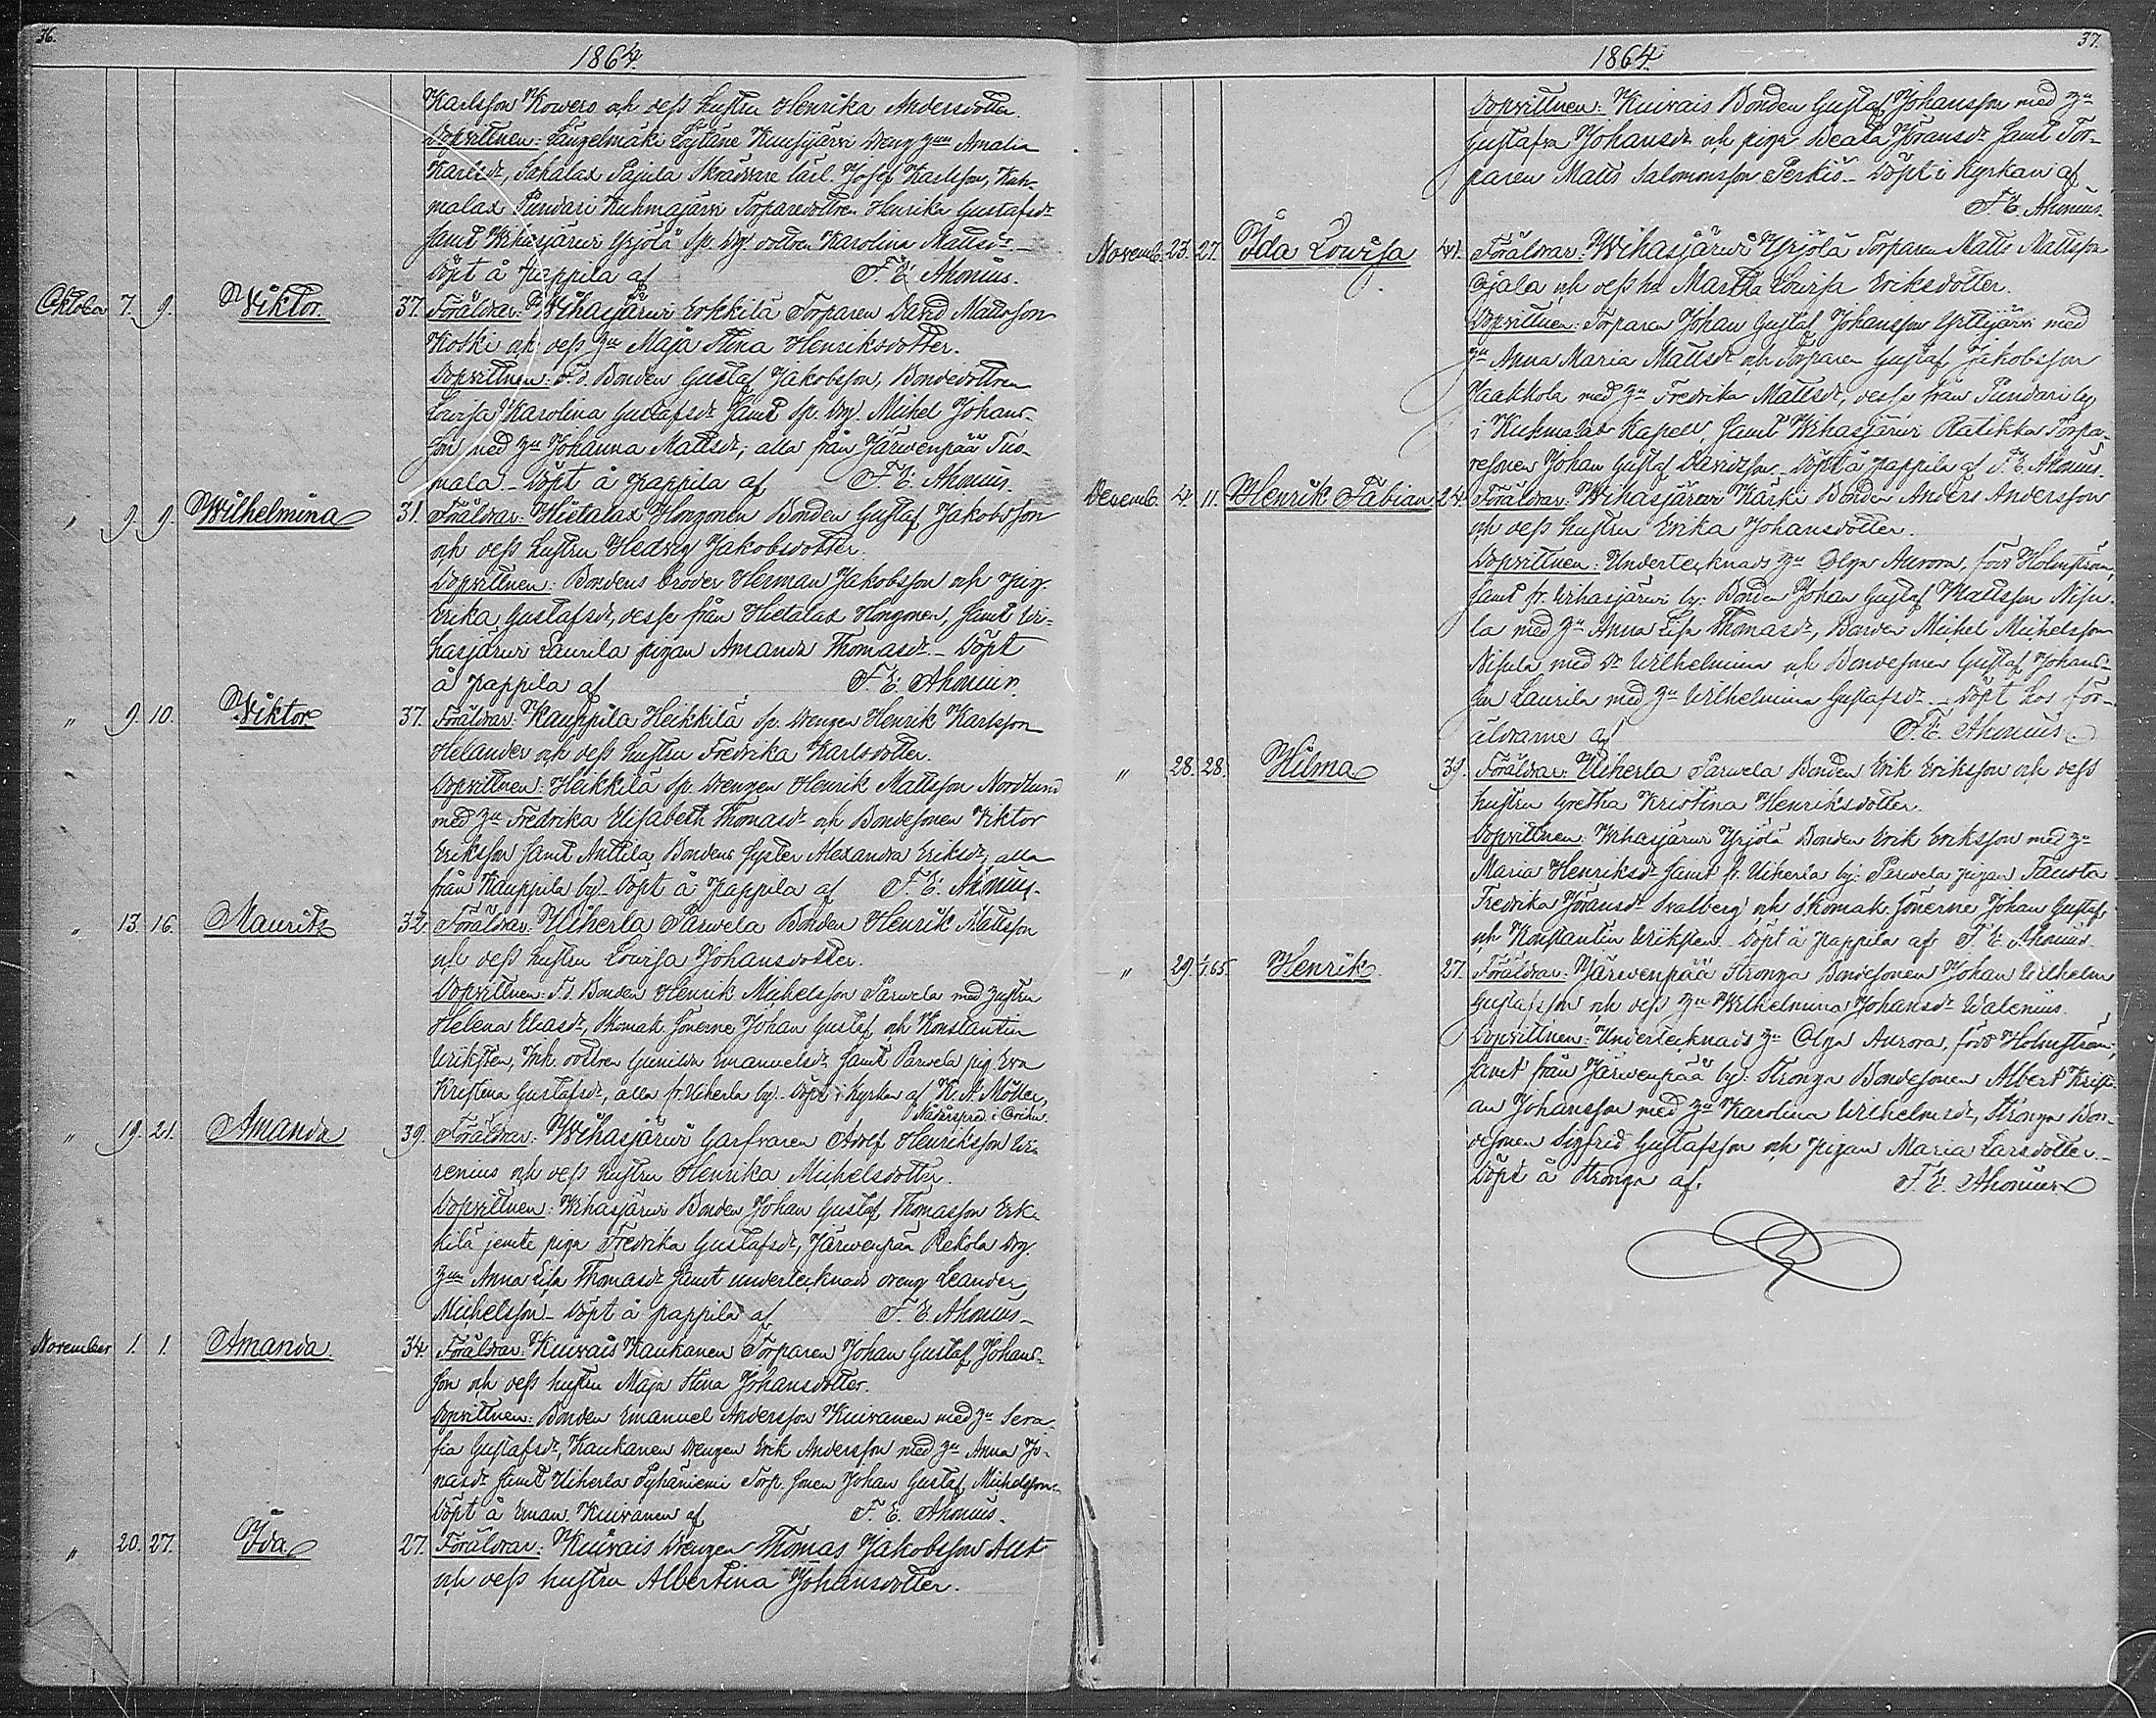 36.
1864.
Karlsson Kowero och dess hustru Henrika Andersdotter.
Dopvittnen: Längelmäki Löytäne Kuusijärvi Dreng h:un Amalia
Karlsdr, Sahalax Pajula Skräddare lärl. Josef Karlsson, Kuh-
malax Pundari Kuhmajärvi Torparedottren Henrika Gustafsdr
samt Wihasjärvi Yrjölä sp. drg. dottren Karolina Mattsdr
Döpt å pappila af F. E. Ahonius.
Oktober 7. 9. Viktor. 37. Föräldrar: Wihasjärvi Erkkilä Torparen David Mattsson
Koski och dess hu Maja Stina Henriksdotter.
Dopvittnen: f. d. Bonden Gustaf Jakobsson, Bondedottren
Lovisa Karolina Gustafsdr samt sp. drg. Mickel Johans-
son med hu Johanna Mattsdr, alla från Järwenpää Tuo-
mala. Döpt å pappila af F. E. Ahonius.
" 9. 9. Wilhelmina 31. Föräldrar: Hietalax Hongonen Bonden Gustaf Jakobsson
och dess hustru Hedvig Jakobsdotter.
Dopvittnen: Bondens broder Herman Jakobsson och pig.
Erika Gustafsdr, desse från Hietalax Hongonen, samt Wi-
hasjärvi Laurila pigan Amanda Thomasdr. Döpt
å pappila af F. E. Ahonius.
" 9. 10. Viktor 37. Föräldrar: Kauppila Heikkilä sp. Drengen Henrik Karlsson
Helander och dess hustru Fredrika Karlsdotter.
Dopvittnen: Heikkilä sp. Drengen Henrik Mattsson Nordlund
med hu Fredrika Elisabeth Thomasdr och Bondesonen Viktor
Eriksson samt Anttila Bondens syster Alexandra Eriksdr, alla
från Kauppila by. Döpt å pappila af F. E. Ahonius.
" 13. 16. Mauritz 32. Föräldrar: Uiherla Parwela Bonden Henrik Mattsson
och dess hustru Lovisa Johansdotter.
Dopvittnen: f. d. Bonden Henrik Mickelsson Parwela med hustru
Helena Eliasdr, Skomak. sönerne Johan Gustaf och Konstantin
Wiksten, Inh. dottren Gunilda Emanuelsdr samt Parwela pig. Eva
Kristina Gustafsdr, alla fr. Uiherla by. Döpt i kyrkan af K. A. Möller,
Nådårspred. i Orihv.
" 19. 21. Amanda 39. Föräldrar: Wihasjärvi Garfvaren Adolf Henriksson Wi-
renius och dess hustru Henrika Mickelsdotter.
Dopvittnen: Wihasjärvi Bonden Johan Gustaf Thomasson Erk-
kilä jemte piga Fredrika Gustafsdr, Järwenpää Rekola drg.
h:un Anna Lisa Thomasdr samt undertecknads dreng Leander
Mickelsson. Döpt å pappila af F. E. Ahonius.
November 1. 1. Amanda. 34. Föräldrar: Kuivais Kaukanen Torparen Johan Gustaf Johans-
son och dess hustru Maja Stina Johansdotter.
Dopvittnen: Bonden Emanuel Andersson Kuivanen med hu Sera-
fia Gustafsdr, Kaukanen Drengen Erik Andersson med hu Anna Jo-
nasdr samt Uiherla Pyhäniemi Torp. sonen Johan Gustaf Mickelsson.
Döpt å Eman. Kuivanen af F. E. Ahonius.
" 20. 27. Ida 27. Föräldrar: Kuivais Drengen Thomas Jakobsson Allt
och dess hustru Albertina Johansdotter.
37.
1864.
Dopvittnen: Kuivais Bonden Gustaf Johansson med hu
Gustafva Johansdr och piga Beata Göransdr samt Tor-
paren Matts Salomonsson Perkiö. Döpt i Kyrkan af
F. E. Ahonius.
Novemb. 23. 27. Ida Lovisa 41. Föräldrar: Wihasjärvi Yrjölä Torparen Matts Mattsson
Ojala och dess hu Martha Lovisa Eriksdotter.
Dopvittnen: Torparen Johan Gustaf Johansson med
hu Anna Maria Mattsdr och Torparen Gustaf Jakobsson
Haakkola med hu Fredrika Mattsdr, desse från Pundari by
i Kuhmalax Kapell, samt Wihasjärvi Ratikka Torpa-
resonen Johan Gustaf Davidsson. Döpt å pappila af F. E. Ahonius.
Decemb. 4. 11. Henrik Fabian 24. Föräldrar: Wihasjärvi Kärki Bonden Anders Andersson
och dess hustru Erika Johansdotter.
Dopvittnen: Undertecknads hu Olga Aurora, född Holmström,
samt fr. Wihasjärvi by: Bonden Johan Gustaf Mattsson Nisu-
la med hu Anna Lisa Thomasdr, Bonden Mickel Mickelsson
Nisula med dr Wilhelmina och Bondesonen Gustaf Johans-
son Laurila med hu Wilhelmina Gustafsdr. Döpt hos för-
äldrarne af F. E. Ahonius.
" 28. 28. Hilma 39. Föräldrar: Uiherla Parwela Bonden Erik Eriksson och dess
hustru Gretha Kristina Henriksdotter.
Dopvittnen: Wihasjärvi Yrjölä Bonden Erik Eriksson med hu
Maria Henriksdr samt fr. Uiherla by: Parwela pigan Fausta
Fredrika Göransdr Svalberg och Skomak. sönerne Johan Gustaf
och Konstantin Wiksten. Döpt å pappila af F. E. Ahonius.
" 29. 1/1 65. Henrik. 27. Föräldrar: Järwenpää Stronga Bondesonen Johan Wilhelm
Gustafsson och dess hu Wilhelmina Johansdr Walenius.
Dopvittnen: Undertecknads hu Olga Aurora, född Holmström,
samt från Järwenpää by: Stronga Bondesonen Albert Kristi-
an Johansson med hu Karolina Wilhelmsdr, Stronga Bon-
desonen Sigfrid Gustafsson och pigan Maria Larsdotter.
Döpt å Stronga af F. E. Ahonius.